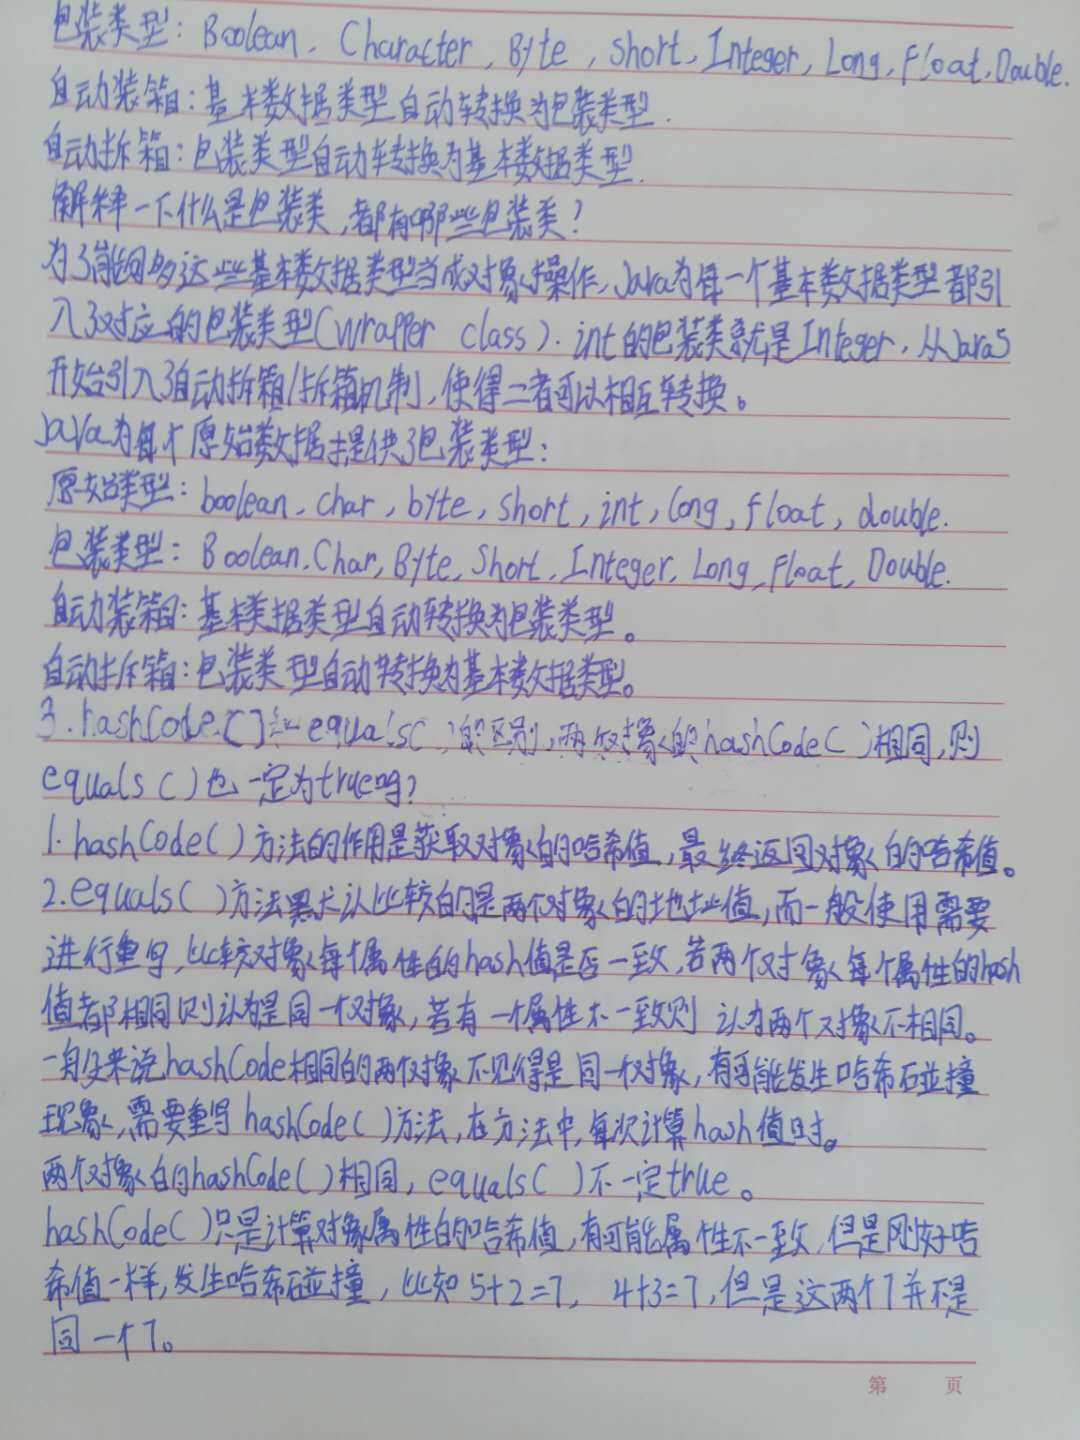 包装类型：Boolean，Character，Byte，short，Integer，Long，Float，Double.
自动装箱：基本数据类型自动转换为包装类型.
自动拆箱：包装类型自动转换为基本数据类型.
解释一下什么是包装类，都有哪些包装类？
为了能够多这些基本数据类型当成对象操作，Java为每一个基本数据类型都引
入了对应的包装类型(wrapper class). int的包装类就是Integer，从Java5
开始引入了自动拆箱/拆箱机制，使得二者可以相互转换。
Java为每个原始数据提供了包装类型：
原始类型：boolean，char，byte，short，int，long，float，double.
包装类型：Boolean，Char，Byte，Short，Integer，Long，Float，Double.
自动装箱：基本类据类型自动转换为包装类型。
自动拆箱：包装类型自动转换为基本数据类型。
3.hashCode()和equals()的区别，两个对象的hashCode()相同，则
equals()也一定为true吗？
1.hashCode()方法的作用是获取对象的哈希值，最终返回对象的哈希值。
2.equals()方法默认比较的是两个对象的地址值，而一般使用需要
进行重写，比较对象每个属性的hash值是否一致，若两个对象每个属性的hash
值都相同则认为是同一个对象，若有一个属性不一致则认为两个对象不相同。
一般来说hashCode相同的两个对象不见得是同一个对象，有可能发生哈希碰撞
现象，需要重写hashCode()方法，在方法中，每次计算hash值时。
两个对象的hashCode()相同，equals()不一定true。
hashCode()只是计算对象属性的哈希值，有可能属性不一致，但是刚好哈
希值一样，发生哈希碰撞，比如5+2=7，4+3=7，但是这两个7并不是
同一个7。
第 页